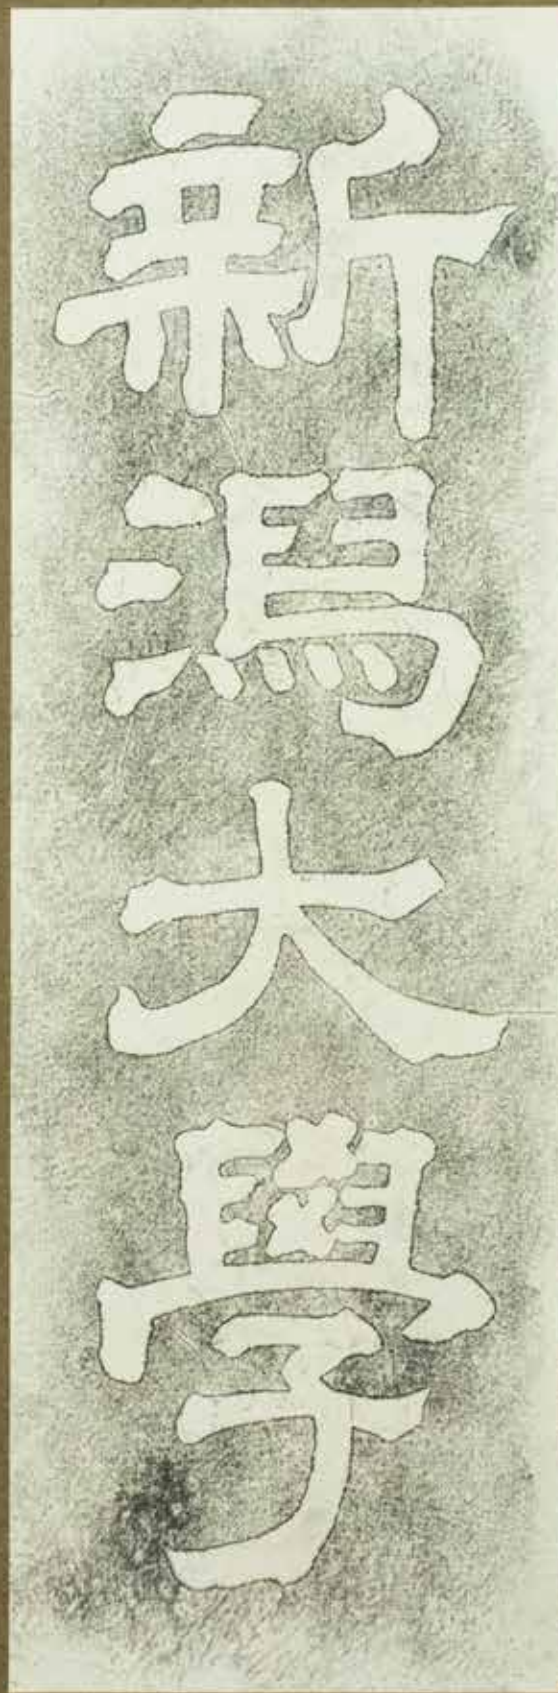 新潟大學